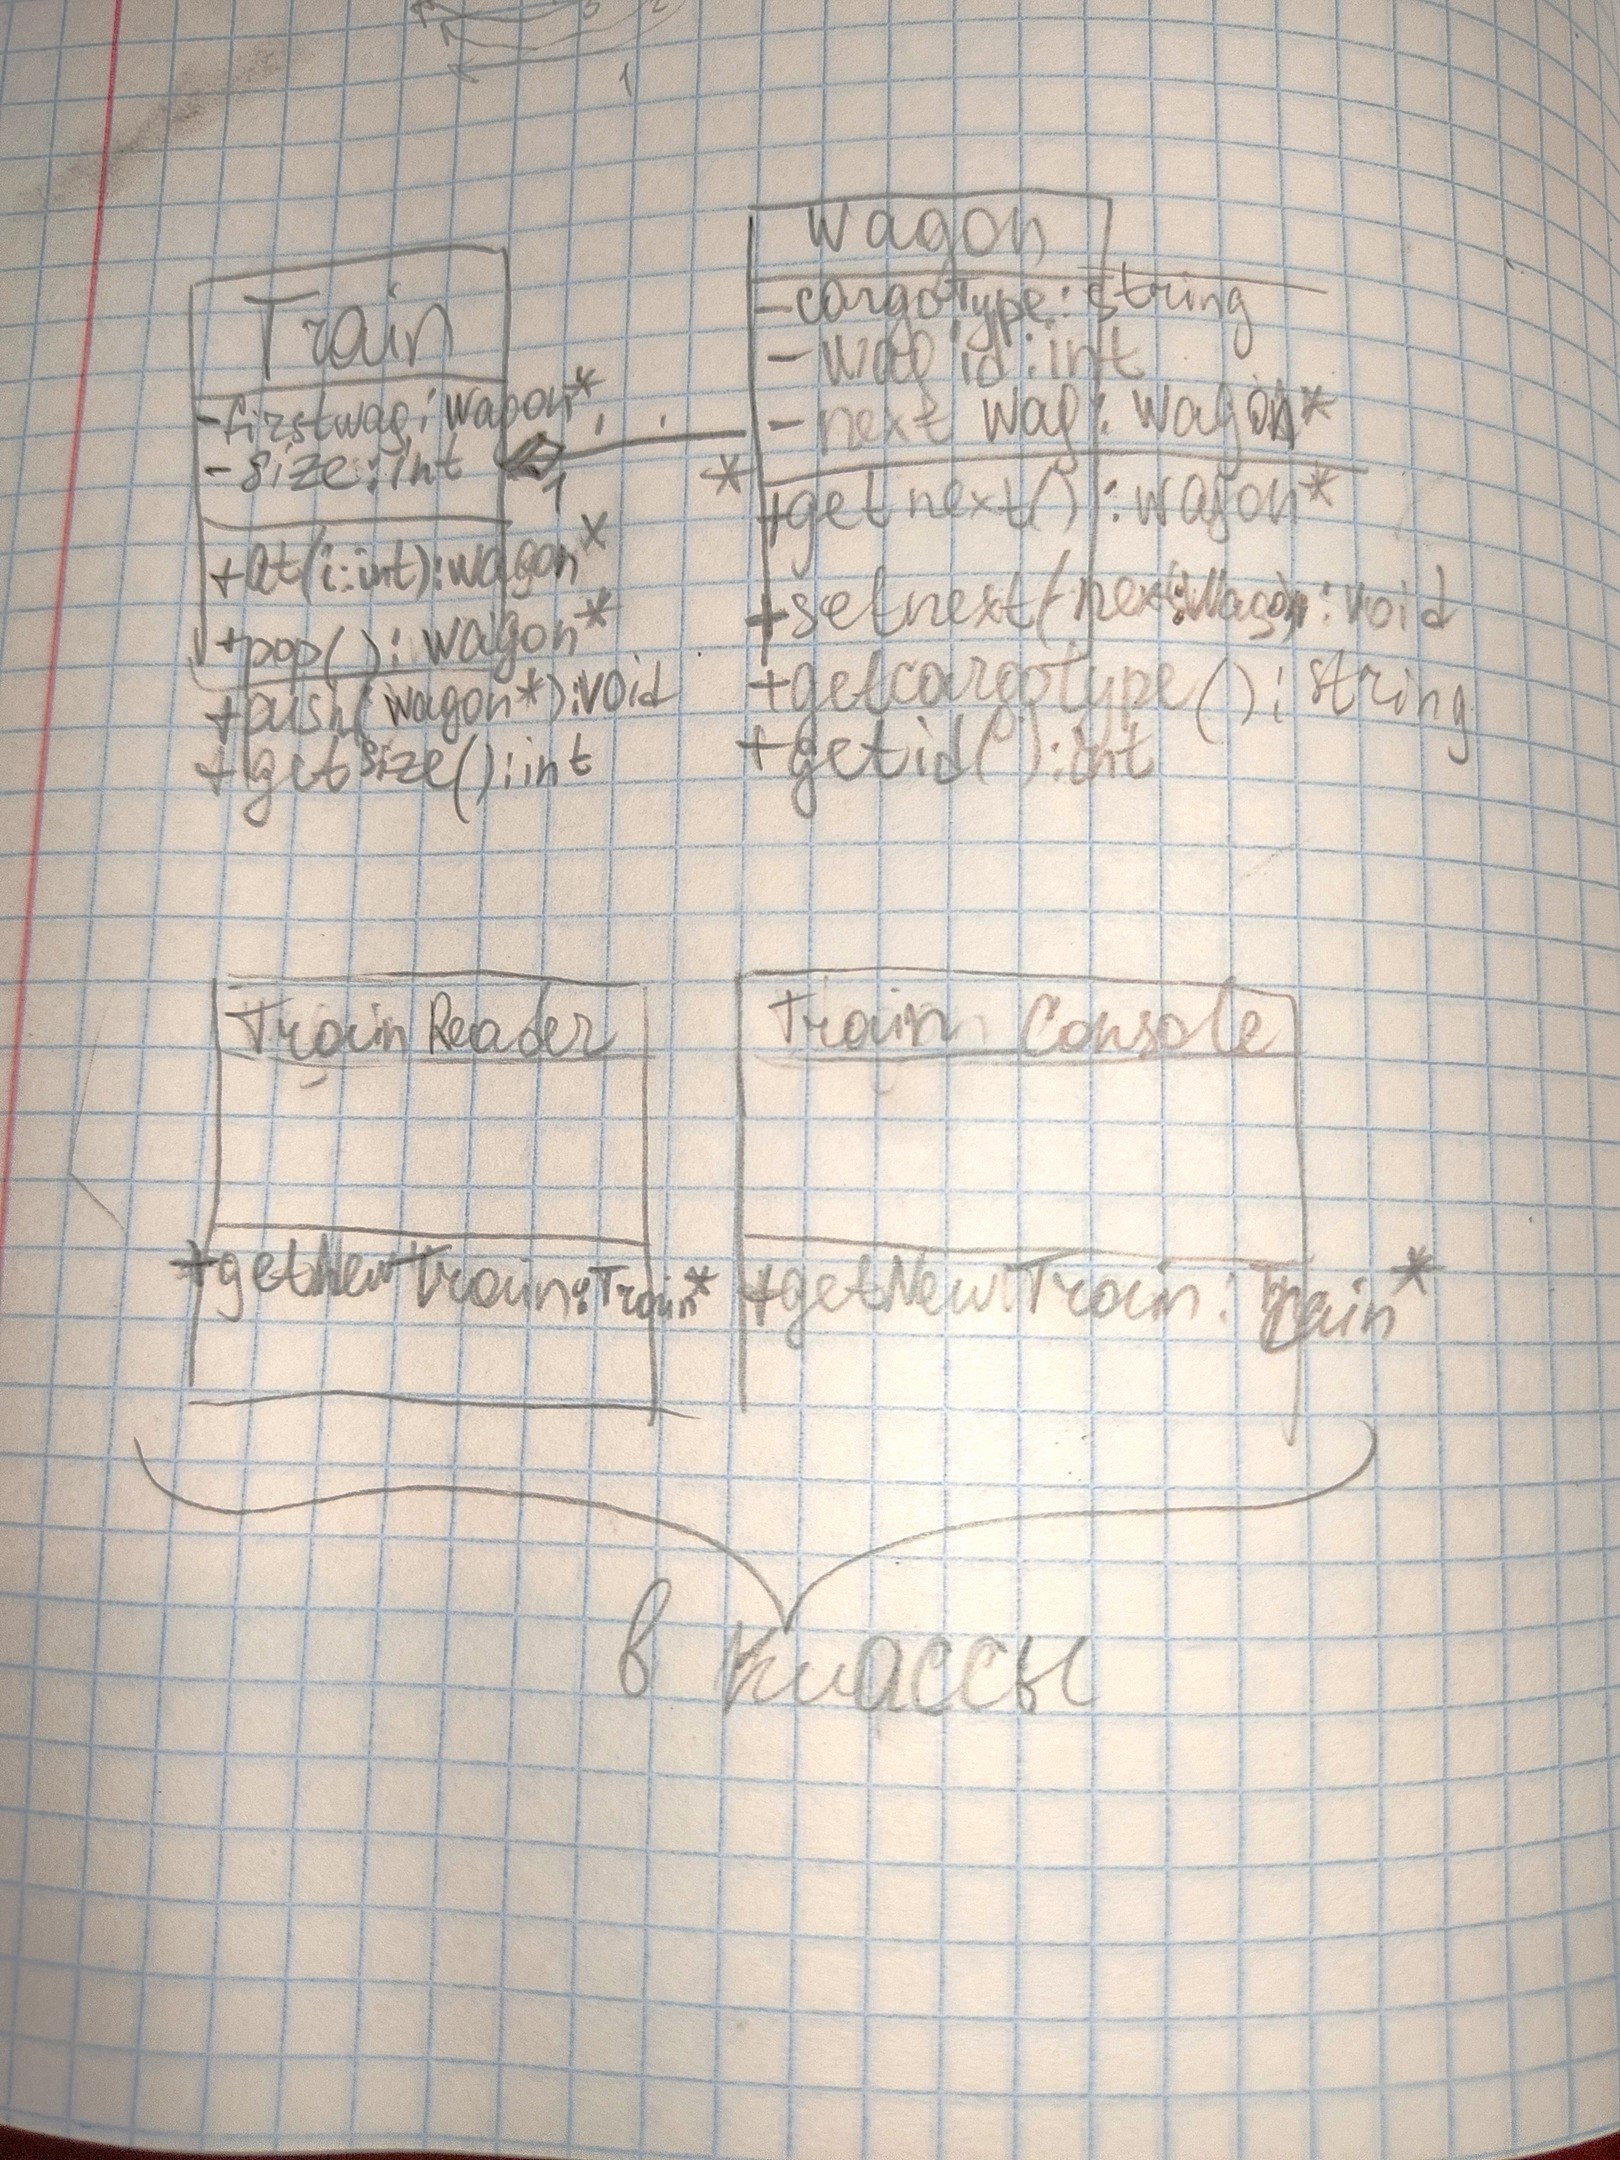 3 2
1
Train
-firstwag: wagon*
-size: int
+at(i:int): wagon*
+pop(): wagon*
+push(wagon*): void
+getsize(): int
1 *
wagon
-cargoType: string
- wag id: int
- next wag: wagon*
+getnext(): wagon*
+setnext(next:Wagon): void
+getcargotype(): string
+getid(): int
Train Reader
+getNewTrain: Train*
Train Console
+getNewTrain: Train*
в классы